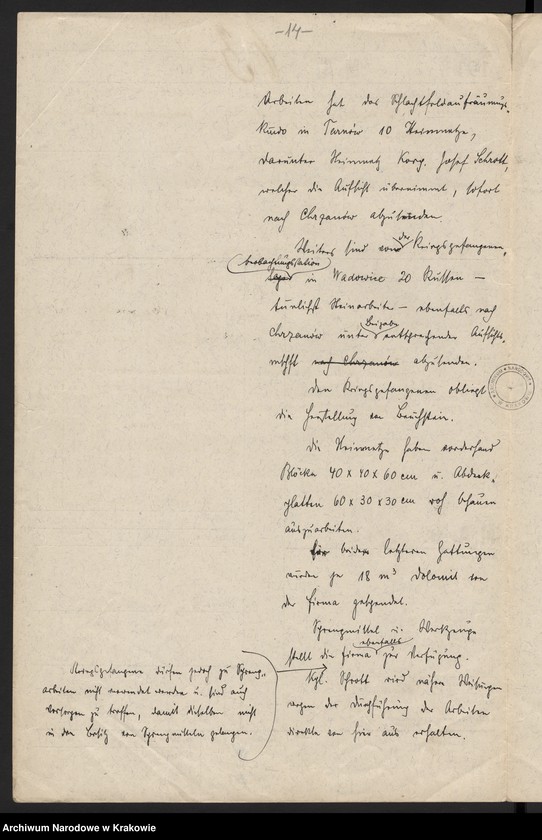 -14-
Arbeiten hat das Schlachtfeldaufräumungs-
Kmdo in Tarnów 10 Steinmetze,
darunter Steinmetz Korp. Josef Schrott,
welcher die Aufsicht übernimmt, sofort
nach Chrzanów abzusenden.
Weiters sind von der Kriegsgefangenen-
beobachtungsstation
lager in Wadowice 20 Russen —
tunlichst Steinarbeiter — ebenfalls nach
Chrzanów unter Beigabe entsprechender Aufsichts-
mschft nach Chrzanów abzusenden.
Den Kriegsgefangenen obliegt
die Herstellung von Bruchstein.
Die Steinmetze haben vorderhand
Blöcke 40 x 40 x 60 cm u. Abdeck-
platten 60 x 30 x 30 cm roh behauen
auszuarbeiten.
Für beide letzteren Gattungen
wurden je 18 m³ Dolomit von
der Firma gespendet.
Sprengmittel u. Werkzeuge
stellt die Firma ebenfalls zur Verfügung.
Kriegsgefangene dürfen jedoch zu Spreng-
arbeiten nicht verwendet werden u. sind auch
Vorsorgen zu treffen, damit dieselben nicht
in den Besitz von Sprengmitteln gelangen.
Schrott wird nähere Weisungen
wegen der Durchführung der Arbeiten
direkte von hier aus erhalten.
Archiwum Narodowe w Krakowie